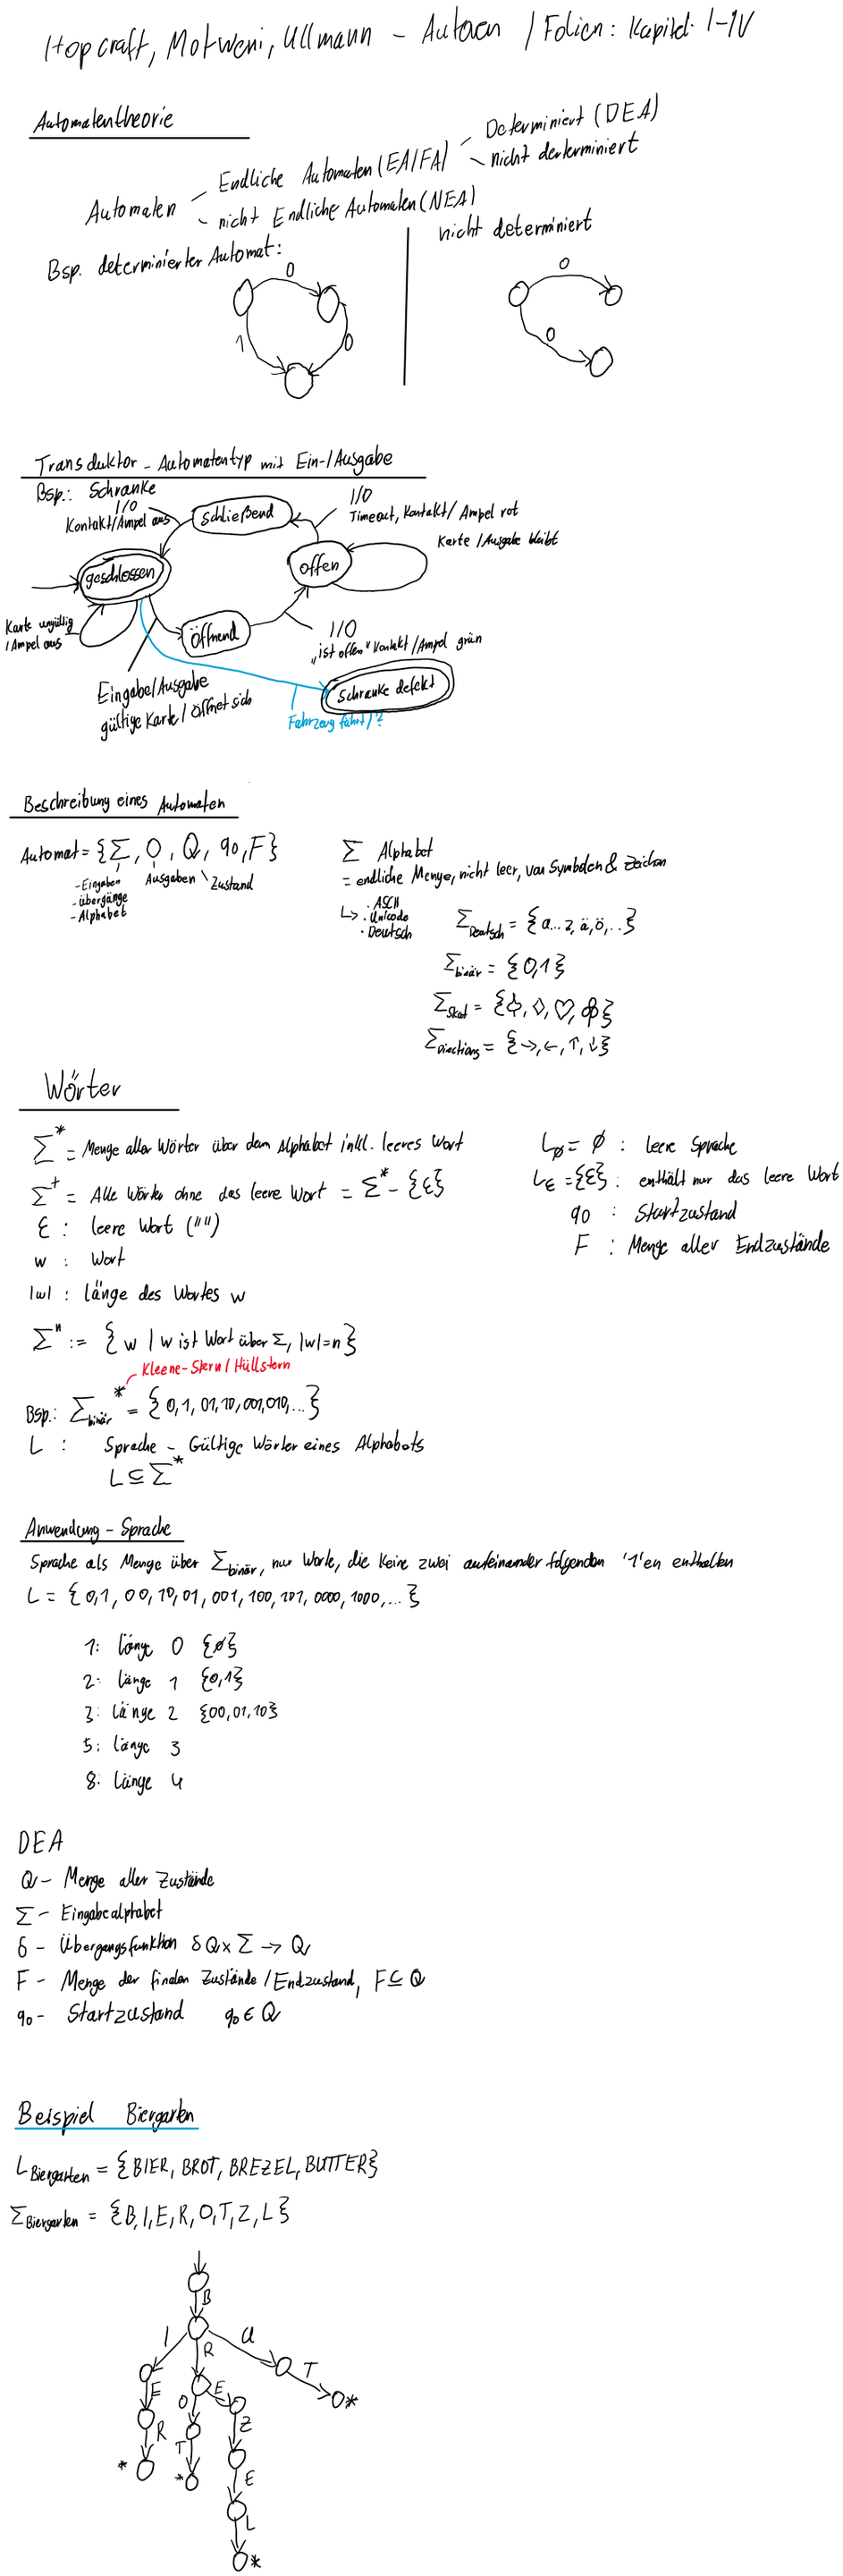 Hopcraft, Motweni, Ullmann - Autoren / Folien: Kapitel: I-IV
Automatentheorie
Automaten
Endliche Automaten (EA/FA)
Determiniert (DEA)
nicht derterminiert
nicht Endliche Automaten (NEA)
Bsp. determinierter Automat:
nicht determiniert
0
1
0
0
0
Transduktor - Automatentyp mit Ein-/Ausgabe
Bsp.: Schranke
I/O
Kontakt/Ampel aus
schließend
I/O
Timeout, Kontakt/ Ampel rot
Karte /Ausgabe bleibt
geschlossen
offen
Karte ungültig
/Ampel aus
Öffnend
I/O
"ist offen" Kontakt /Ampel grün
Eingabe/Ausgabe
gültige Karte/ öffnet sich
Schranke defekt
Fahrzeug fährt/?
Beschreibung eines Automaten
Automat = {Σ, O, Q, q0, F}
- Eingaben
- übergänge
- Alphabet
Ausgaben
Zustand
Σ Alphabet
= endliche Menge, nicht leer, von Symbolen & Zeichen
↳ · ASCII
· Unicode
· Deutsch
Σ Deutsch = {a...z, ä, ö, ..}
Σ binär = {0,1}
Σ Skat = {♤, ♢, ♡, ♧}
Σ Directions = {→, ←, ↑, ↓}
Wörter
Σ* = Menge aller Wörter über dem Alphabet inkl. leeres Wort
Σ+ = Alle Wörter ohne das leere Wort = Σ* - {ε}
ε : leere Wort ("")
w : Wort
|w| : länge des Wortes w
Σn := { w | w ist Wort über Σ, |w|=n}
Kleene-Stern / Hüllstern
Bsp.: Σ binär * = {0, 1, 01, 10, 001, 010, ...}
L : Sprache - Gültige Wörter eines Alphabets
L ⊆ Σ*
L∅ = ∅ : leere Sprache
Lε = {ε} : enthält nur das leere Wort
q0 : Startzustand
F : Menge aller Endzustände
Anwendung - Sprache
Sprache als Menge über Σ binär, nur Worte, die keine zwei aufeinander folgenden '1'en enthalten
L = { 0,1, 00, 10, 01, 001, 100, 101, 0000, 1000, ... }
1: länge 0 {∅}
2: länge 1 {0,1}
3: länge 2 {00, 01, 10}
5: länge 3
8: länge 4
DEA
Q - Menge aller Zustände
Σ - Eingabealphabet
δ - Übergangsfunktion δ Q x Σ → Q
F - Menge der finalen Zustände / Endzustand, F ⊆ Q
q0 - Startzustand q0 ∈ Q
Beispiel Biergarten
L Biergarten = {BIER, BROT, BREZEL, BUTTER}
Σ Biergarten = {B, I, E, R, O, T, Z, L}
B
I R U
E O E T
*
R T Z
* * E
L
*